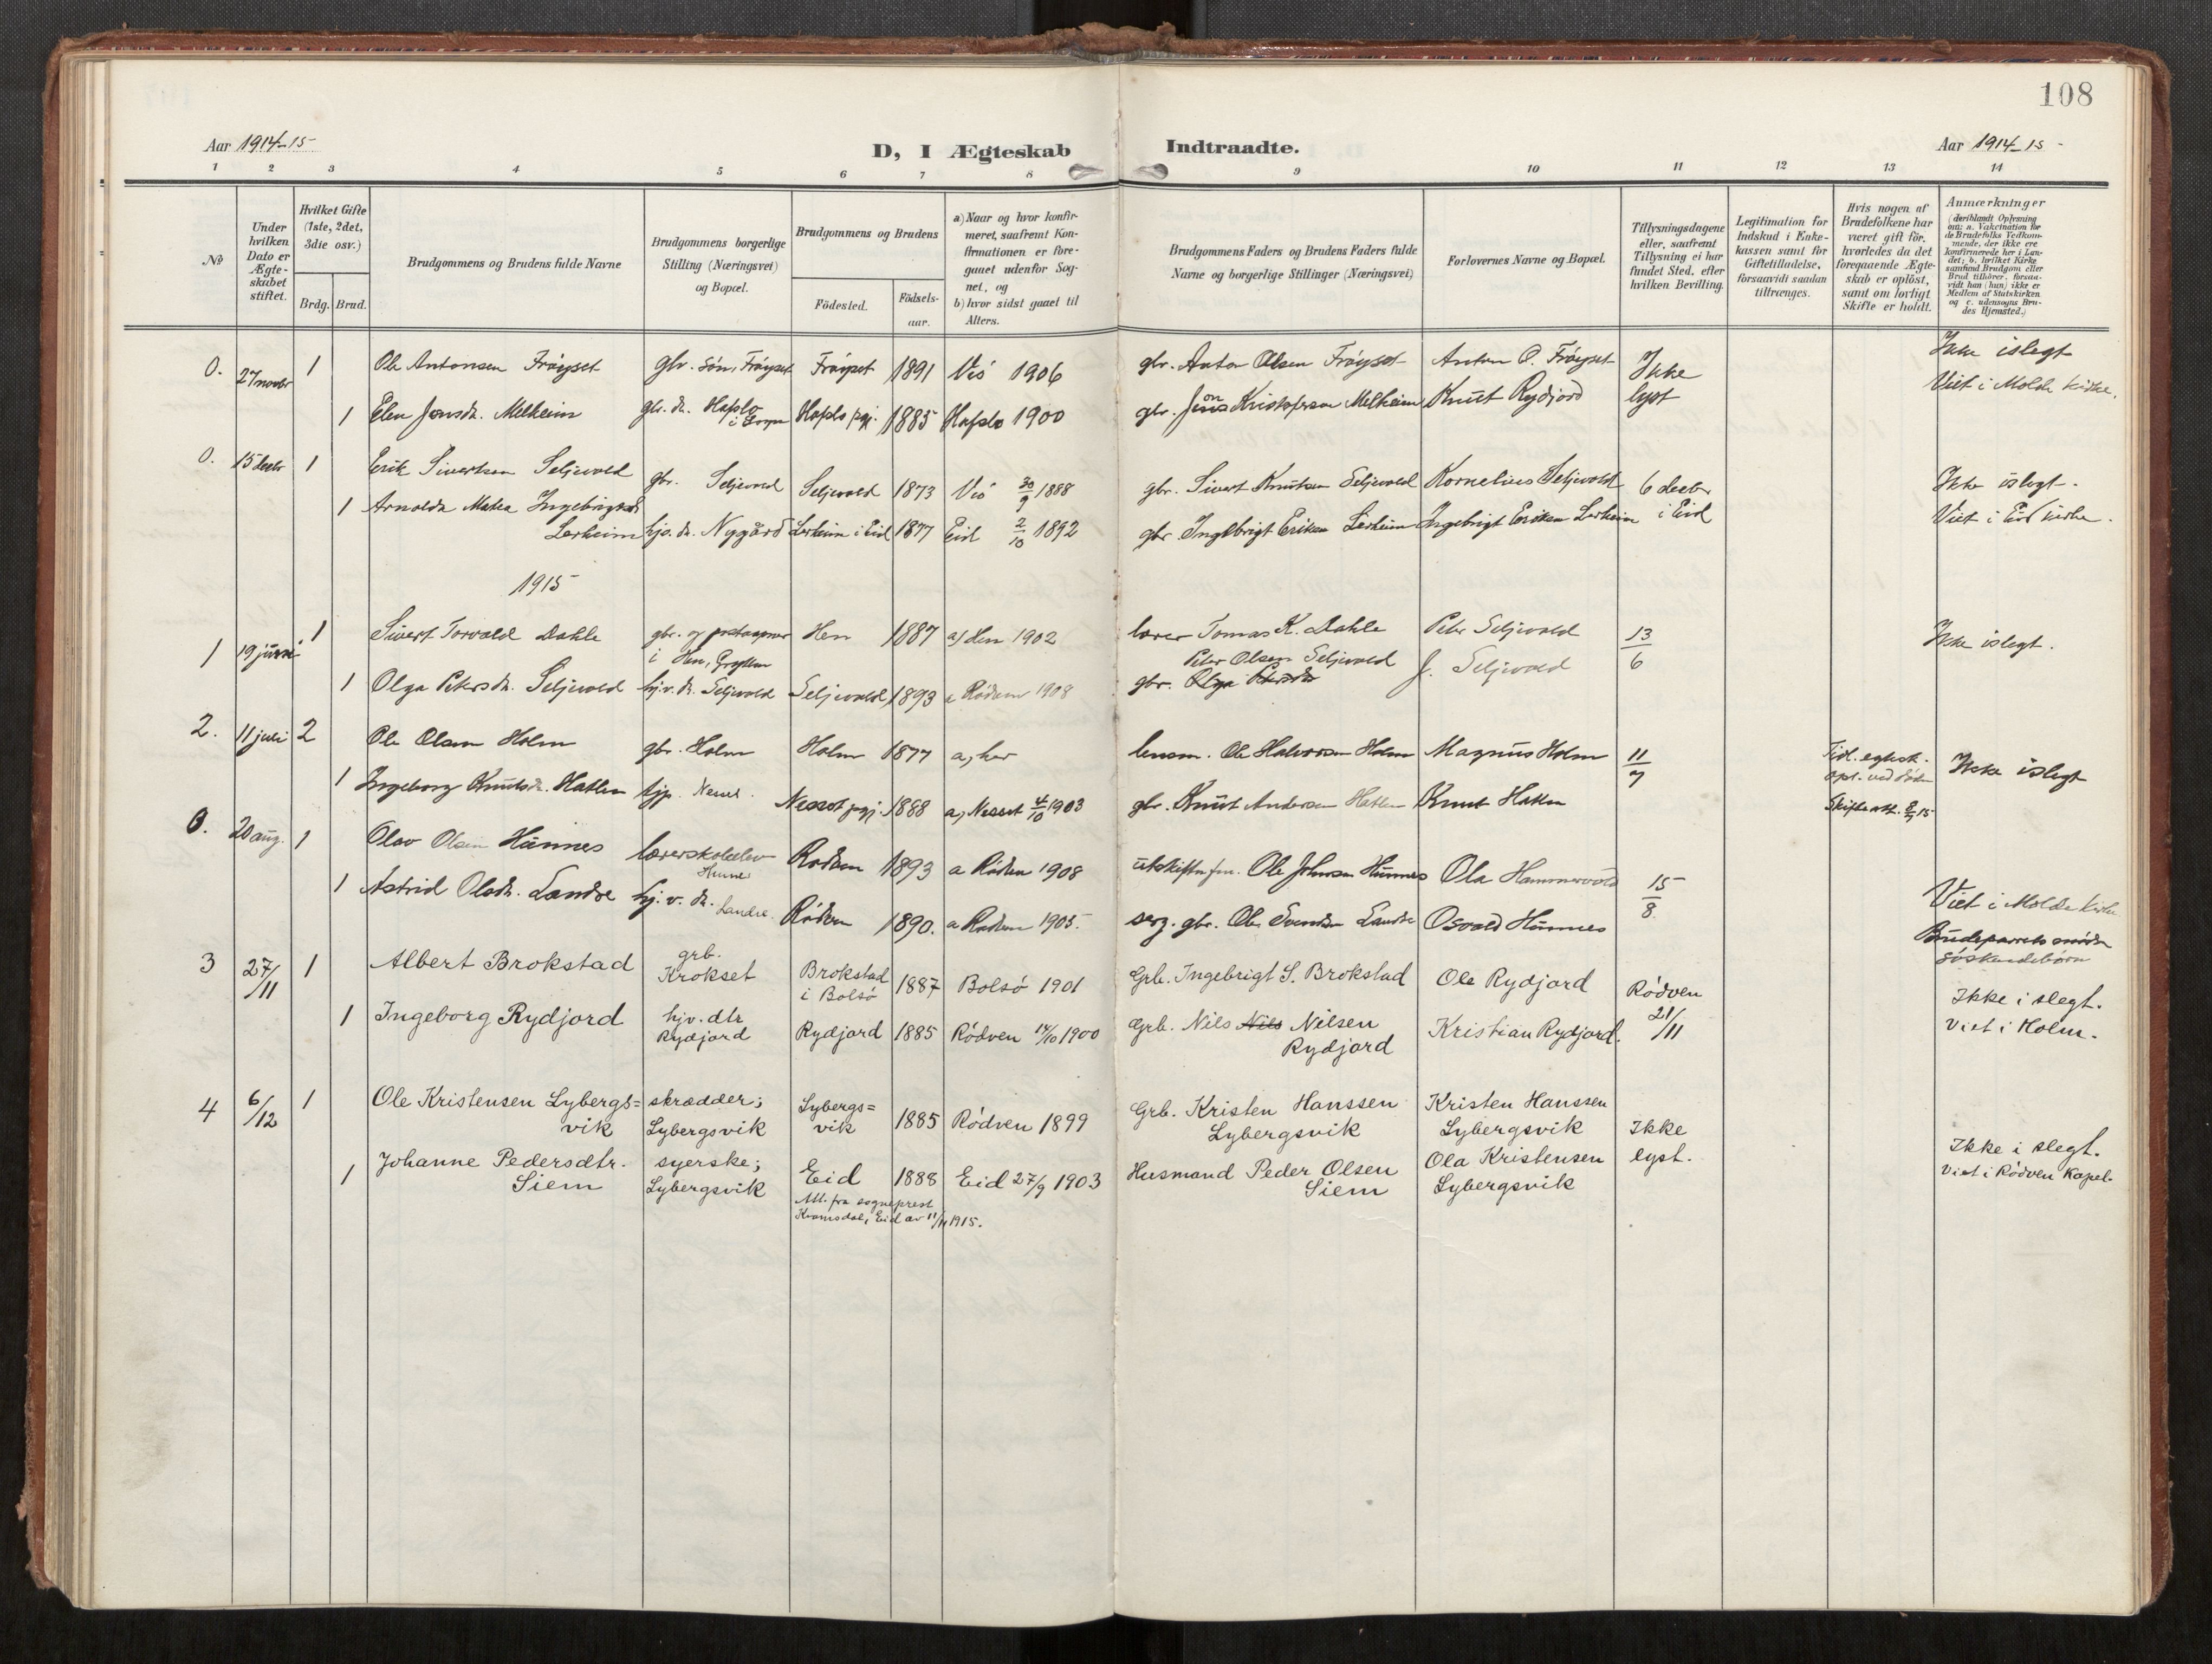 108
Aar 1914-15
D, I Ægteskab Indtraadte.
Aar 1914-15
1 2 3 4 5 6 7 8 9 10 11 12 13 14
No
Under hvilken Dato er Ægteskabet stiftet.
Hvilket Gifte (1ste, 2det, 3die osv.)
Brdg. Brud.
Brudgommens og Brudens fulde Navne
Brudgommens borgerlige Stilling (Næringsvei) og Bopæl.
Brudgommens og Brudens
Födested. Födselsaar.
a) Naar og hvor konfirmeret, saafremt Konfirmationen er foregaaet udenfor Sognet, og
b) hvor sidst gaaet til Alters.
Brudgommens Faders og Brudens Faders fulde Navne og borgerlige Stillinger (Næringsvei)
Forlovernes Navne og Bopæl.
Tillysningsdagene eller, saafremt Tillysning ei har fundet Sted, efter hvilken Bevilling.
Legitimation for Indskud i Enkekassen samt for Giftetilladelse, forsaavidt saadan tiltrænges.
Hvis nogen af Brudefolkene har været gift för, hvorledes da det foregaaende Ægteskab er oplöst, samt om lovligt Skifte er holdt.
Anmærkninger
(deriblandt Oplysning om: a. Vakcination for de Brudefolks Vedkommende, der ikke ere konfirmerede her i Landet; b. hvilket Kirkesamfund Brudgom eller Brud tilhörer, forsaavidt han (hun) ikke er Medlem af Statskirken og c. udensogns Brudes Hjemsted.)
0. 27 novbr 1 Ole Antonsen Fröyset gbr. sön, Fröyset Fröyset 1891 Vö 1906 gbr. Anton Olsen Fröyset Anton O. Fröyset Ikke Ikke islegt
1 Elen Jonsdr. Melheim gbr. dr. Hafslo i Sogn Hafslo pgj. 1885 Hafslo 1900 gbr. Jon Kristofersen Melheim Knut Rydjord lyst Viet i Molde kirke.
0. 15 decbr 1 Erik Sivertsen Seljevold gbr. Seljevold Seljevold 1873 Vö 30/9 1888 gbr. Sivert Knutsen Seljevold Kornelius Seljevold 6 decbr Ikke islegt.
1 Arnolda Matea Ingebrigtsd
Lerheim hjv. dr. Nygård Lerheim i Eid 1877 Eid 2/10 1892 gbr. Ingebrigt Eriksen Lerheim Ingebrigt Eriksen Lerheim i Eid Viet i Eid kirke.
1915
1 19 juni 1 Sivert Torvald Dahle gbr. og postaapner i Hen, Grytten Hen 1887 a) Hen 1902 lærer Tomas K. Dahle Peter Seljevold 13/6 Ikke islegt.
1 Olga Petersdr. Seljevold hjv. dr. Seljevold Seljevold 1893 a Rödven 1908 gbr. Peter Olsen Seljevold Olga Petersdr J. Seljevold
2. 11 juli 2 Ole Olsen Holm gbr. Holm Holm 1877 a, her lensm. Ole Halvorsen Holm Magnus Holm 11/7 Tidl. egtesk. opl. ved döden Ikke islegt
1 Ingeborg Knutsdr. Hatlen Nesset pgj. 1888 a, Nesset 4/10 1903 gbr. Knut Andersen Hatlen Knut Hatlen Skifteatt. 15
0. 20 aug. 1 Olav Olsen Hunnes lærerskoleelev Hunnes Rödven 1893 a Rödven 1908 utskiftnfm. Ole Johnsen Hunnes Ola Hammervold 15/8 Viet i Molde kirke
1 Astrid Olsdr. Landre hj. v. dr. Landre Rödven 1890. a Rödven 1905. serg. gbr. Ole Svendsen Landre Osvald Hunnes Brudeparrets mödre söskendebörn
3 27/11 1 Albert Brokstad grb. Krokset Brokstad i Bolsö 1887 Bolsö 1901 Grb. Ingebrigt S. Brokstad Ole Rydjord Rödven Ikke i slegt.
1 Ingeborg Rydjord hjv. dtr Rydjord Rydjord 1885 Rödven 14/10 1900 Grb. Nils Nils Nilsen Rydjord Kristian Rydjord. 21/11 Viet i Holm.
4 6/12 1 Ole Kristensen Lybergs=vik skrædder; Lybergsvik Lybergs=vik 1885 Rödven 1899 Grb. Kristen Hanssen Lybergsvik Kristen Hanssen Lybergsvik Ikke Ikke i slegt.
1 Johanne Pedersdtr. Siem syerske; Lybergsvik Eid 1888 Eid 27/9 1903 Husmand Peder Olsen Siem Ola Kristensen Lybergsvik lyst. Viet i Rödven Kapel.
Att. fra sogneprest
Kramsdal, Eid av 11/11 1915.